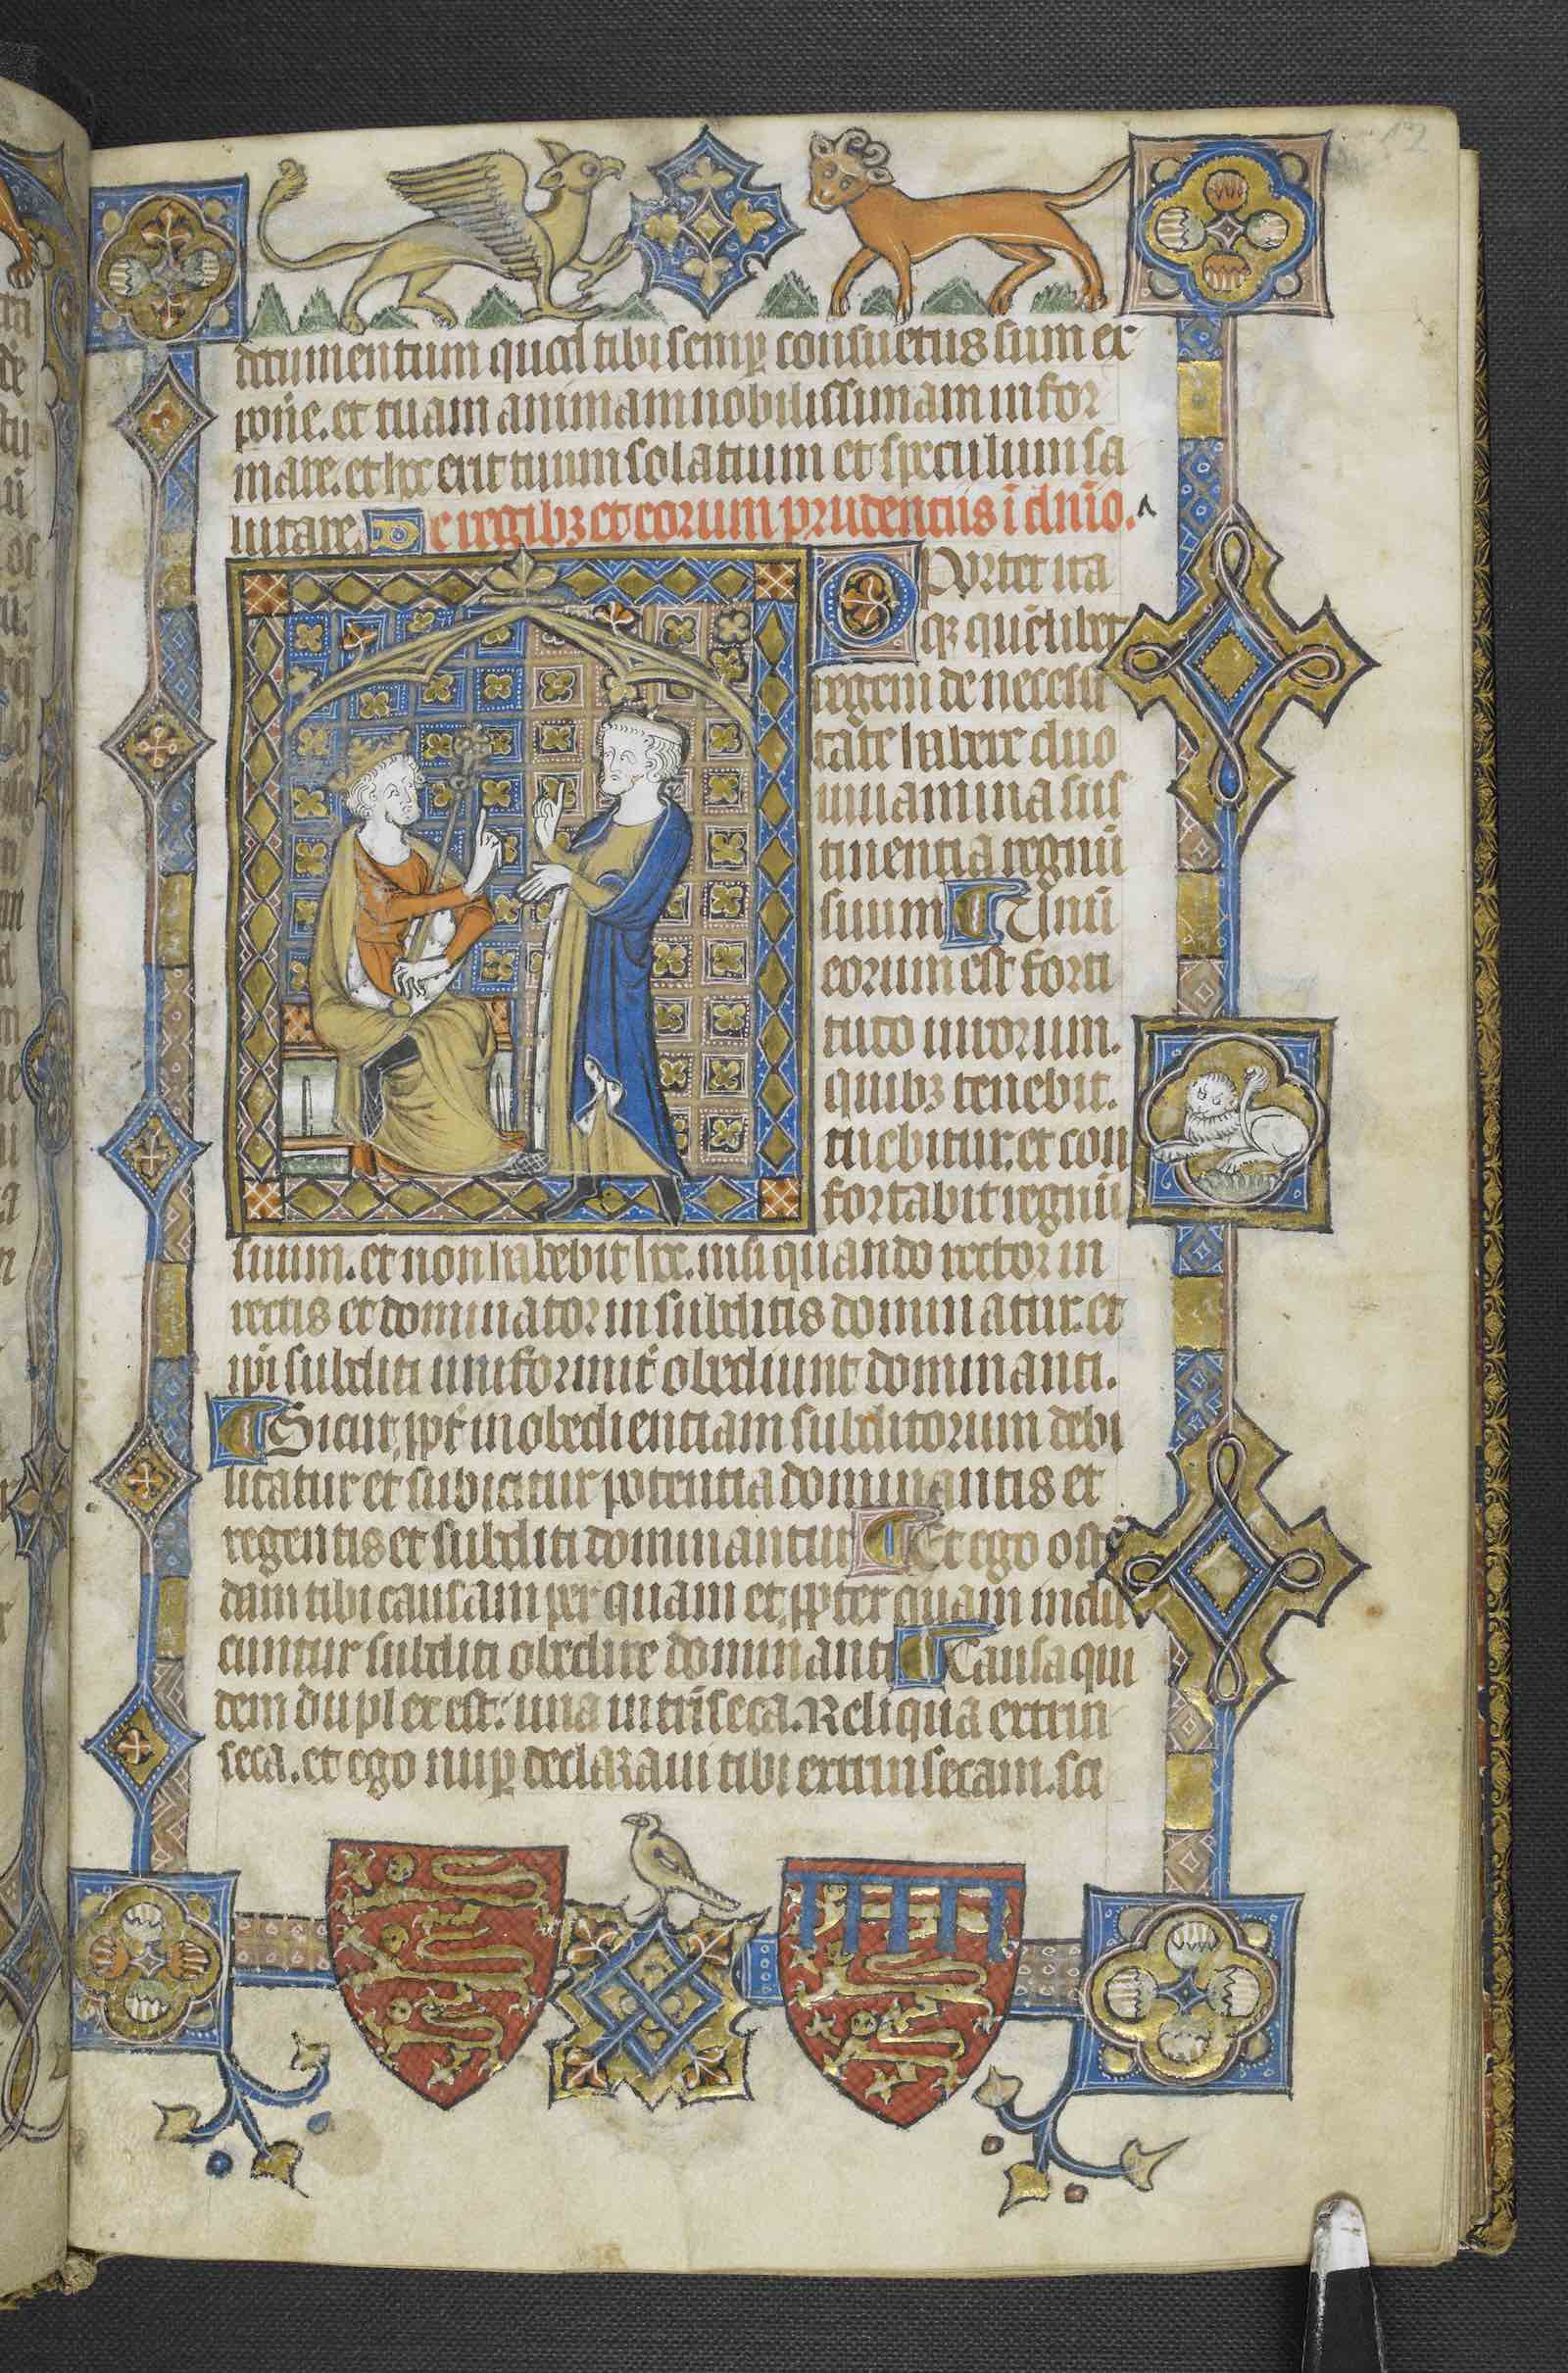 12
documentum quod tibi semꝑ consuetus sum ex
pon̄e. et tuam animam nobilissimam infor
mare. et hec erit tuum solatium et speculum sa
lutare. De regibꝫ et eorum prudentiis ī dn̄io.
Oportet ita
qꝫ quēlibet
regem de necessi
tate habere duo
iuuamina sus
tinentia regnū
suum Unū
eorum est forti
tudo uirorum.
quibꝫ tenebit.
tuebitur. et con
fortabit regnū
suum. et non habebit hec. nisi quando rector in
rectis et dominator in subditis dominatur. et
ip̄i subditi uniformit̄ obediunt dominanti.
Sicut ꝓpt̄ inobedientiam subditorum debi
litatur et subicitur potentia dominantis et
regentis et subditi dominantur Et ego ostē
dam tibi causam per quam et ꝓpter quam indu
cuntur subditi obedire dominanti Causa qui
dem duplex est: una intrīseca. Reliqua extrin
seca. et ego nuꝑ declaraui tibi extrinsecam. sci